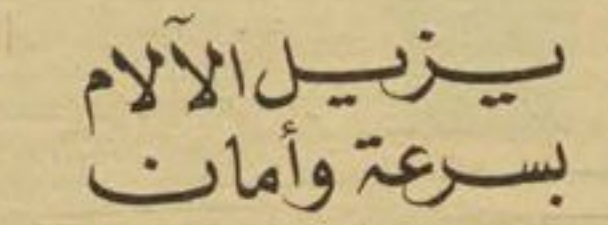 يزيل الآلام
بسرعة وأمان